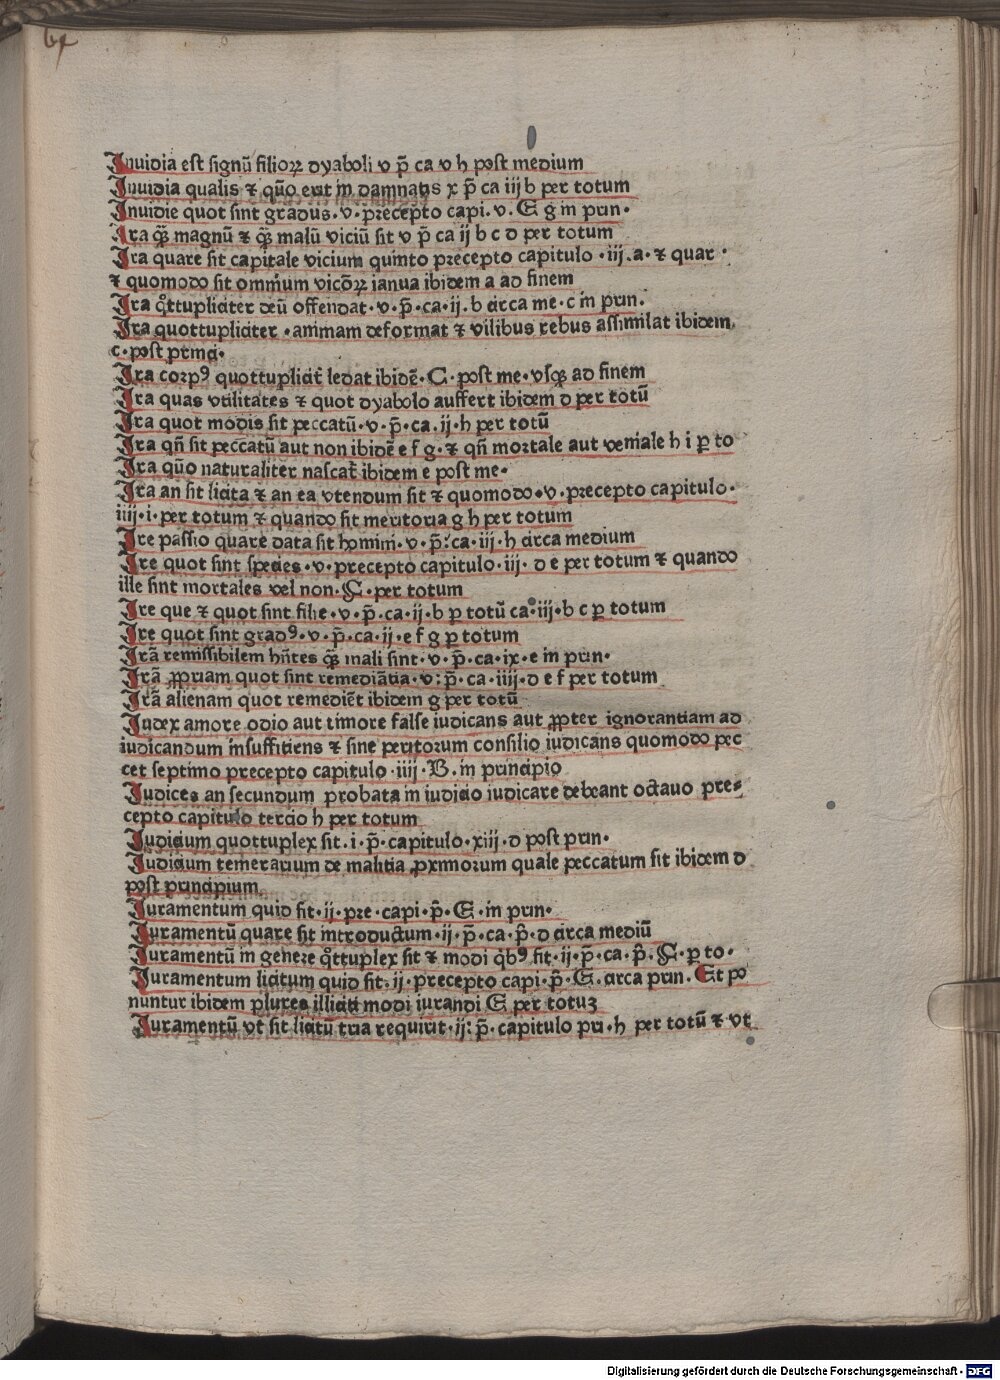 64
Inuidia est signū filioꝝ dyaboli v p̄ ca v h post medium
Inuidia qualis ⁊ quō erit in damnatis x p̄ ca iij b per totum
Inuidie quot sint gradus · v · precepto capi · v · E g in prin ·
Ira qȝ̄ magnū ⁊ qȝ̄ malū viciū sit v p̄ ca ij b c d per totum
Ira quare sit capitale vicium quinto precepto capitulo · iij · a · ⁊ quar ·
⁊ quomodo sit omnium vicōꝝ ianua ibidem a ad finem
Ira qͦttupliciter deū offendat · v · p̄ · ca · ij · b circa me · c in prin ·
Ira quottupliciter · animam deformat ⁊ vilibus rebus assimilat ibidem
c · post princi ·
Ira corpꝰ quottuplicit̄ ledat ibidē · C · post me · vsqȝ ad finem
Ira quas vtilitates ⁊ quot dyabolo auffert ibidem d per totū
Ira quot modis sit peccatū · v · p̄ · ca · ij · h per totū
Ira qn̄ sit peccatū aut non ibidē e f g · ⁊ qn̄ mortale aut veniale h i ꝑ to
Ira quō naturaliter nascat̄ ibidem e post me ·
Ira an sit licita ⁊ an ea vtendum sit ⁊ quomodo · v · precepto capitulo ·
iiij · i · per totum ⁊ quando sit meritoria g h per totum
Ire passio quare data sit homini · v · p̄ · ca · iij · h circa medium
Ire quot sint species · v · precepto capitulo · iij · d e per totum ⁊ quando
ille sint mortales vel non · F · per totum
Ire que ⁊ quot sint filie · v · p̄ · ca · ij · b ꝑ totū ca · iij · b c ꝑ totum
Ire quot sint gradꝰ · v · p̄ · ca · ij · e f g ꝑ totum
Irā remissibilem hn̄tes qȝ̄ mali sint · v · p̄ · ca · ix · e in prin ·
Irā ꝓpriam quot sint remediātia · v : p̄ · ca · iiij · d e f per totum
Irā alienam quot remediēt ibidem g per totū
Iudex amore odio aut timore false iudicans aut ꝓpter ignorantiam ad
iudicandum insuffitiens ⁊ sine peritorum consilio iudicans quomodo pec
cet septimo precepto capitulo · iiij · B · in principio
Iudices an secundum probata in iudicio iudicare debeant octauo pre⸗
cepto capitulo tercio h per totum
Iudicium quottuplex sit · i · p̄ · capitulo · xiij · d post prin ·
Iudicium temerarium de malitia ꝓximorum quale peccatum sit ibidem d
post principium
Iuramentum quid sit · ij · pre · capi · p̄ · E · in prin ·
Iuramentū quare sit introductum · ij · p̄ · ca · p̄ · d circa mediū
Iuramentū in genere qͦttuplex sit ⁊ modi qͥbꝰ fit · ij · p̄ · ca · p̄ · F · ꝑ to ·
Iuramentum licitum quid sit · ij · precepto capi · p̄ · G · circa prin · Et po
nuntur ibidem plures illiciti modi iurandi G per totuȝ
Iuramentū vt sit licitū tria requirit · ij : p̄ · capitulo pri · h per totū ⁊ vt
Digitalisierung gefördert durch die Deutsche Forschungsgemeinschaft - DFG